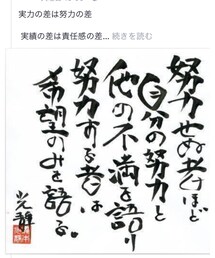 実力の差は努力の差
実績の差は責任感の差... 続きを読む
努力せぬ者ほど
自分の努力と
他の不満を語り
努力する者は
希望のみを語る。